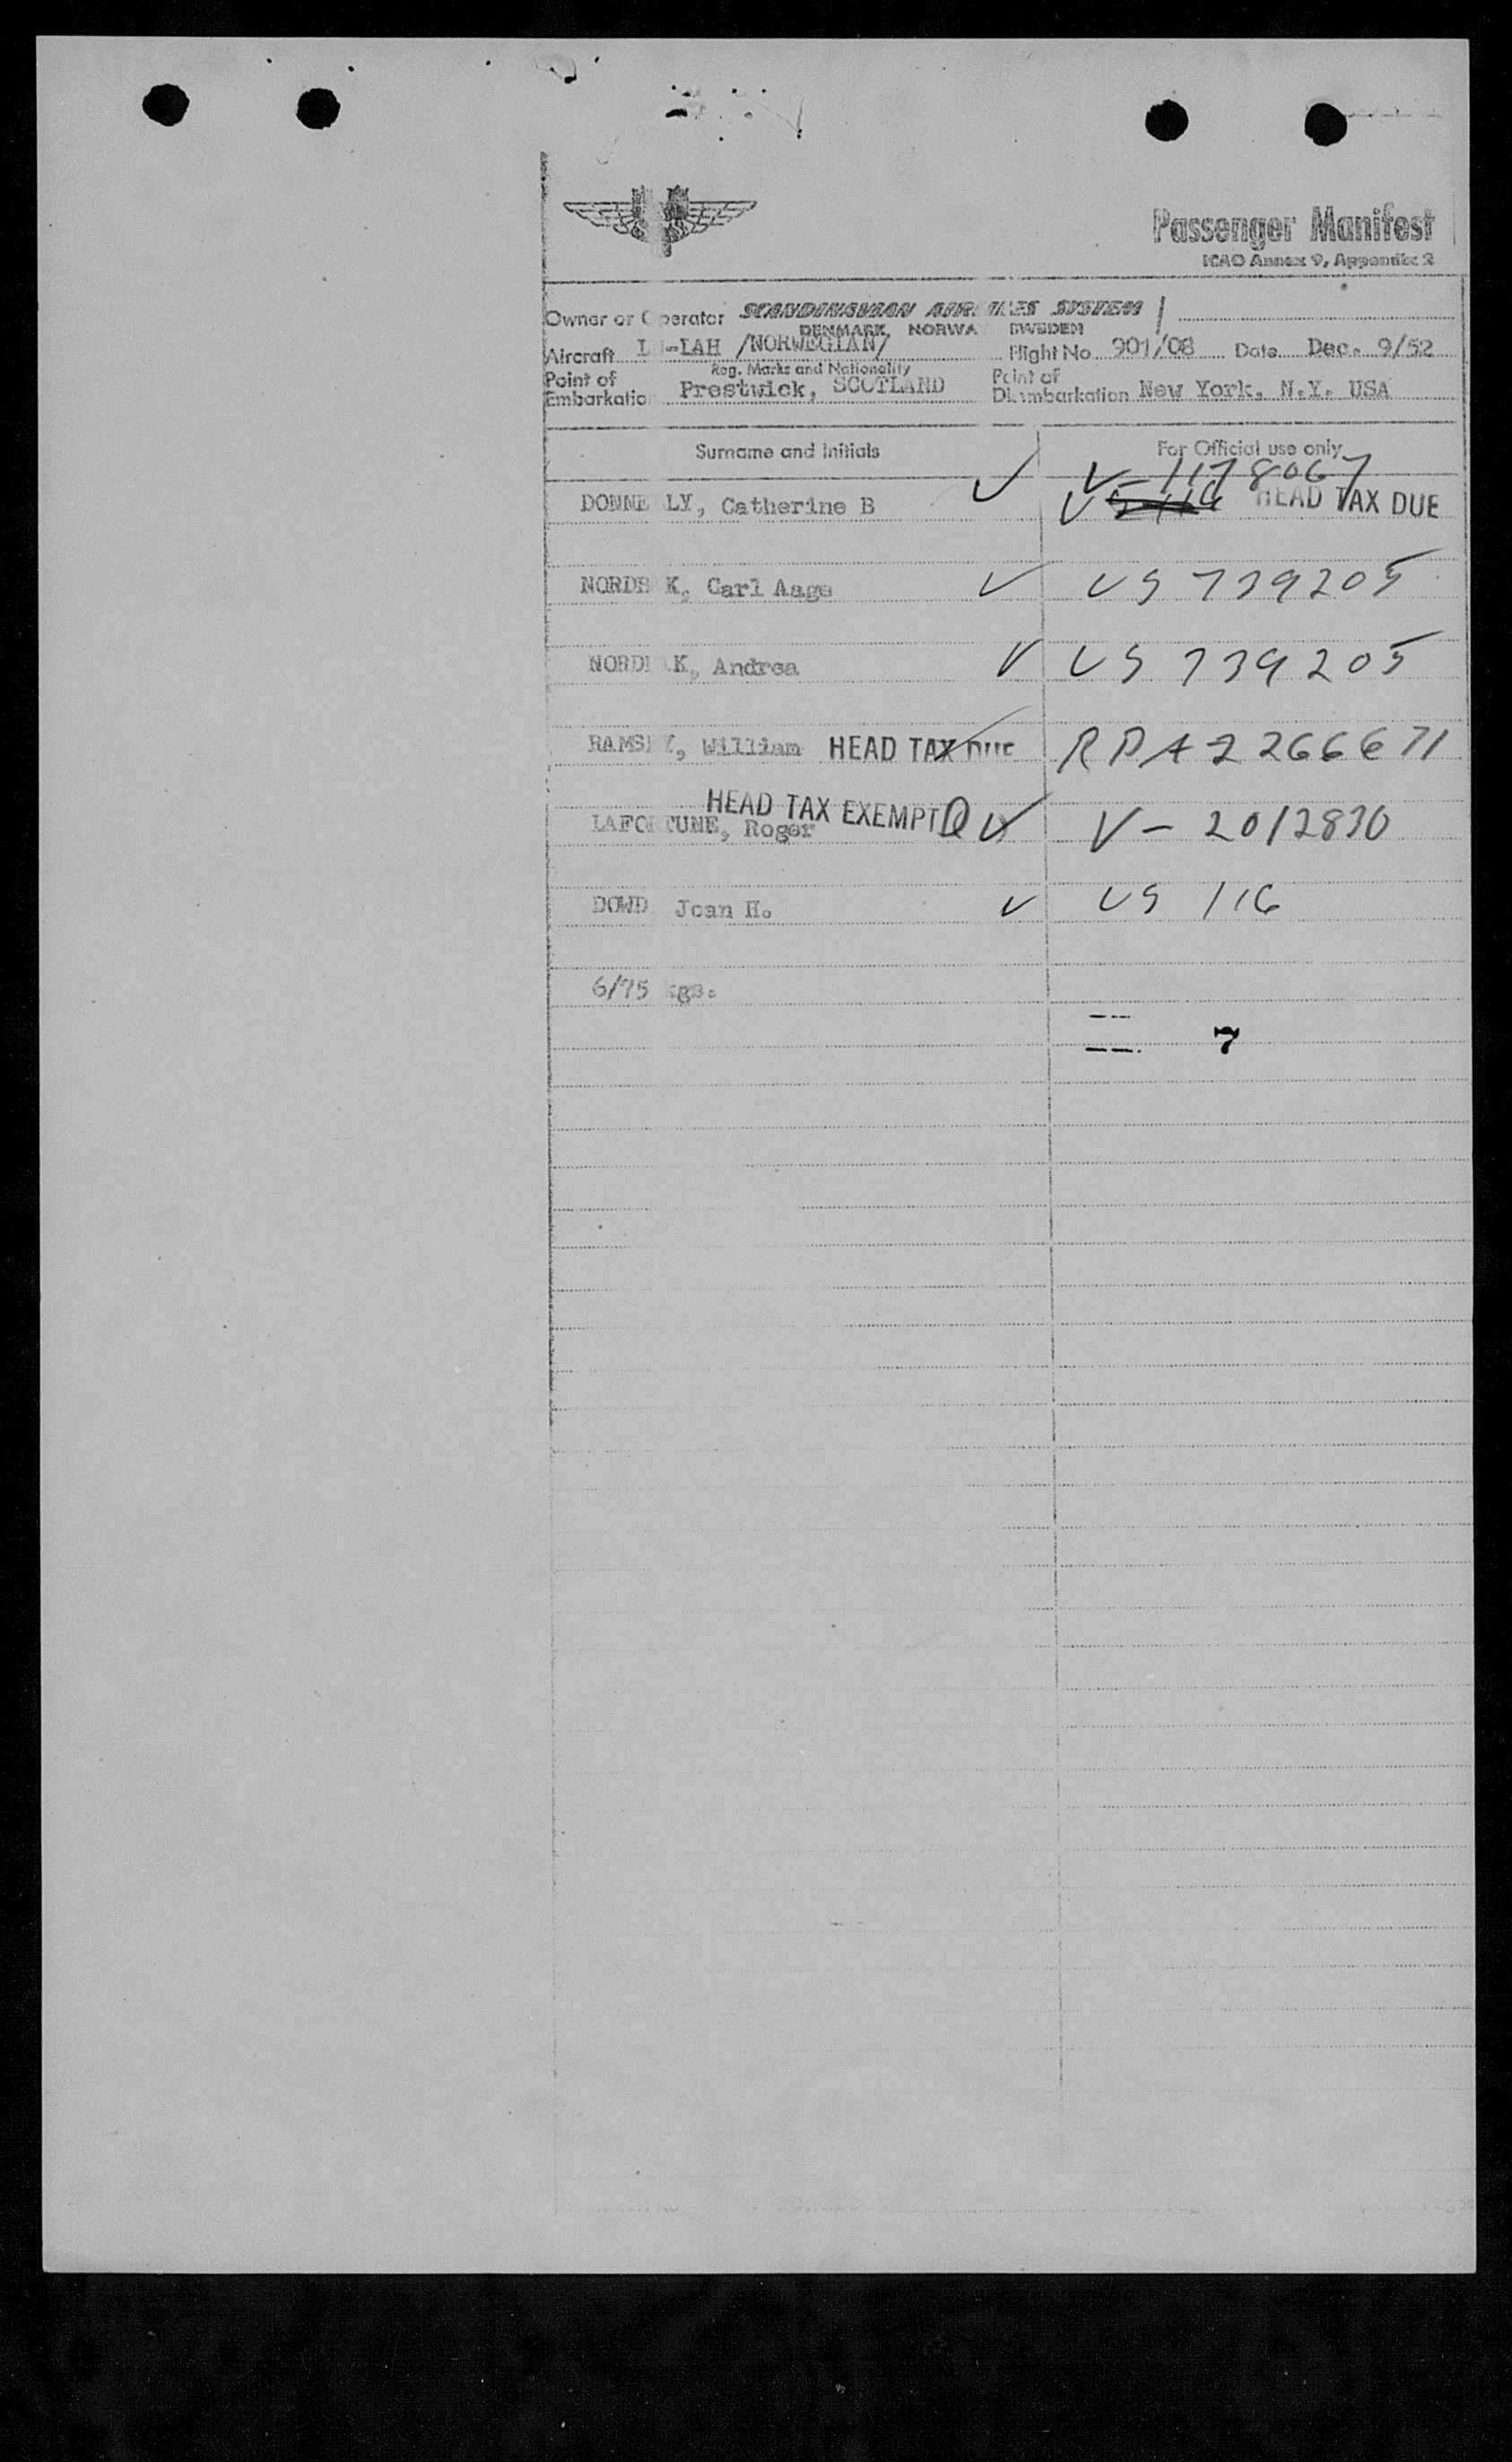 Passenger Manifest
ICAO Annex 9, Appendix 2
Owner or Operator SCANDINAVIAN AIRLINES SYSTEM
DENMARK NORWAY SWEDEN
Aircraft LN-IAH /NORWEGIAN/ Flight No 901/08 Date Dec. 9/52
Reg. Marks and Nationality
Point of Embarkation Prestwick, SCOTLAND Point of Disembarkation New York, N.Y. USA
Surname and Initials For Official use only
V-1178067
DONNELLY, Catherine B HEAD TAX DUE
NORDBAK, Carl Aage US 739205
NORDBAK, Andrea US 739205
RAMSEY, William HEAD TAX DUE RPA2266671
HEAD TAX EXEMPT
LAFORTUNE, Roger V-2012830
DOWD Joan H. US 116
6/75 kgs.
7